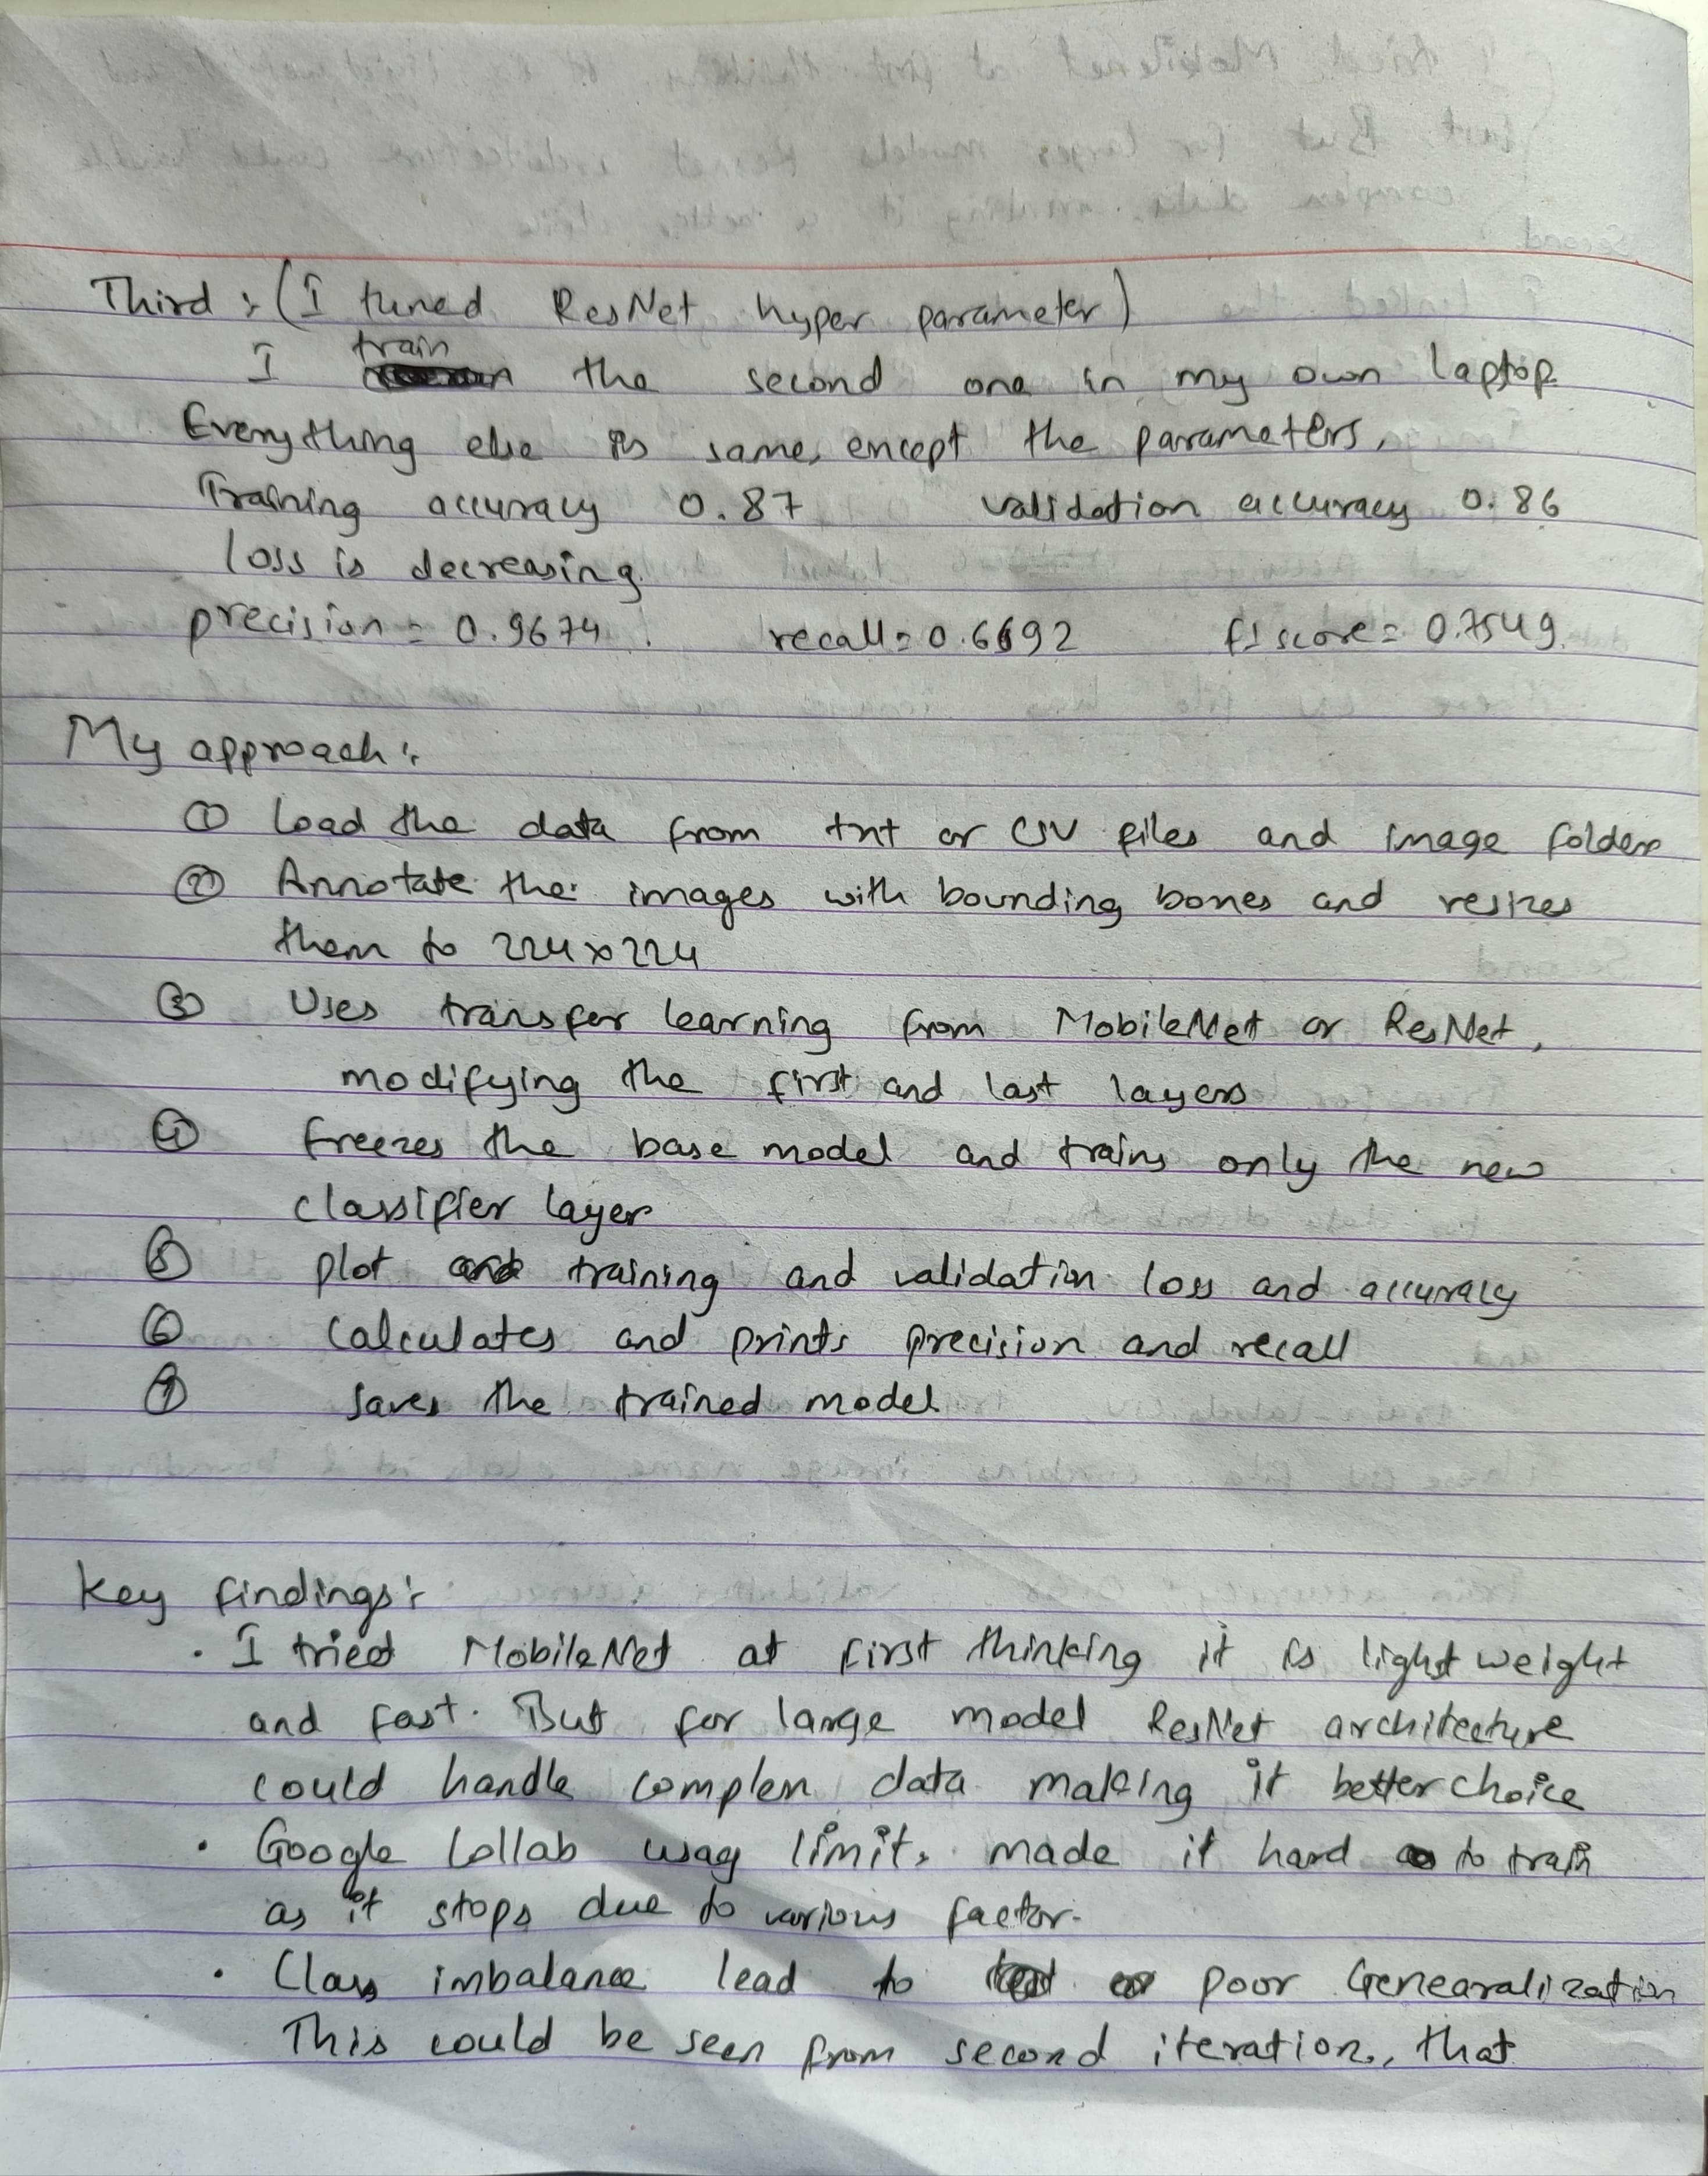 Third : (I tuned ResNet hyper parameter)
I train the second one in my own laptop
Everything else is same, except the parameters.
Training accuracy 0.87 validation accuracy 0.86
loss is decreasing.
precision = 0.9674. recall = 0.6692 f1 score = 0.7549.
My approach :
① Load the data from txt or CSV files and image folder
② Annotate the images with bounding boxes and resizes
them to 224x224
③ Uses transfer learning from MobileNet or ResNet,
modifying the first and last layers
④ freezes the base model and trains only the new
classifier layer
⑤ plot training and validation loss and accuracy
⑥ Calculates and prints precision and recall
⑦ saves the trained model
Key findings :
• I tried MobileNet at first thinking it is light weight
and fast. But for large model ResNet architecture
could handle complex data making it better choice
• Google Collab usag limit, made it hard to train
as it stops due to various factor.
• Class imbalance lead to poor Genearalization
This could be seen from second iteration, that